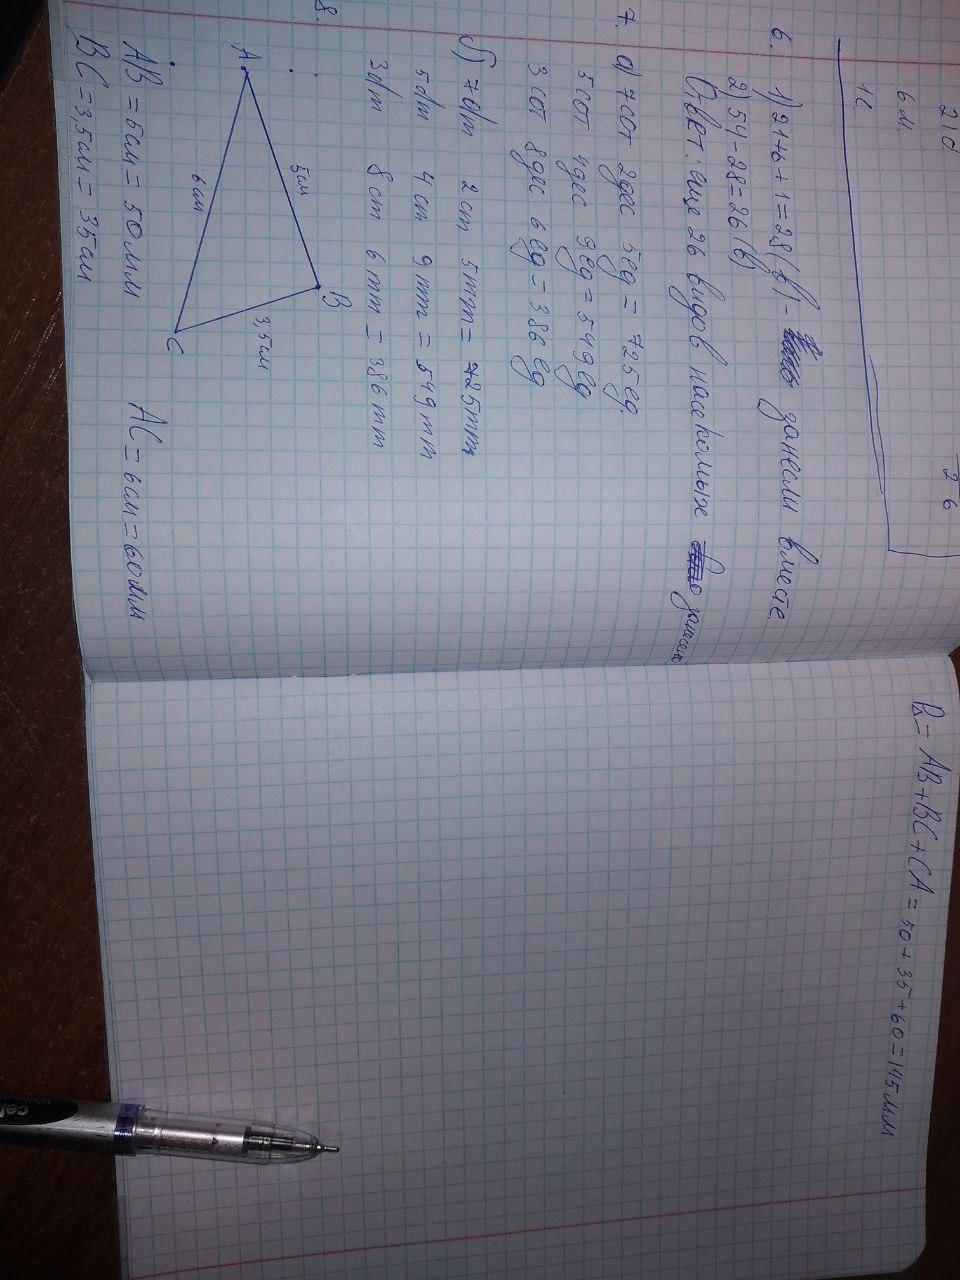 210
6 м.
1с
26
6. 1) 21+6+1=28 (в) - занесли вместе.
2) 54-28=26 (в)
Ответ: еще 26 видов насекомых занесено
7. а) 7 сот 2 дес 5 ед = 725 ед.
5 сот 4 дес 9 ед = 549 ед
3 сот 8 дес 6 ед = 386 ед
б) 7 dm 2 cm 5 mm = 725 mm
5 dm 4 cm 9 mm = 549 mm
3 dm 8 cm 6 mm = 386 mm
8.
A
5 см
B
6 см
3,5 см
C
AB = 5 см = 50 мм AC = 6 см = 60 мм
BC = 3,5 см = 35 см
P△ = AB + BC + CA = 50 + 35 + 60 = 145 мм
cel